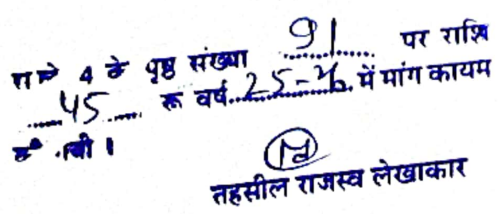 4 के पृष्ठ संख्या 91 पर राशि
45 रू वर्ष 25-26 में मांग कायम
तहसील राजस्व लेखाकार